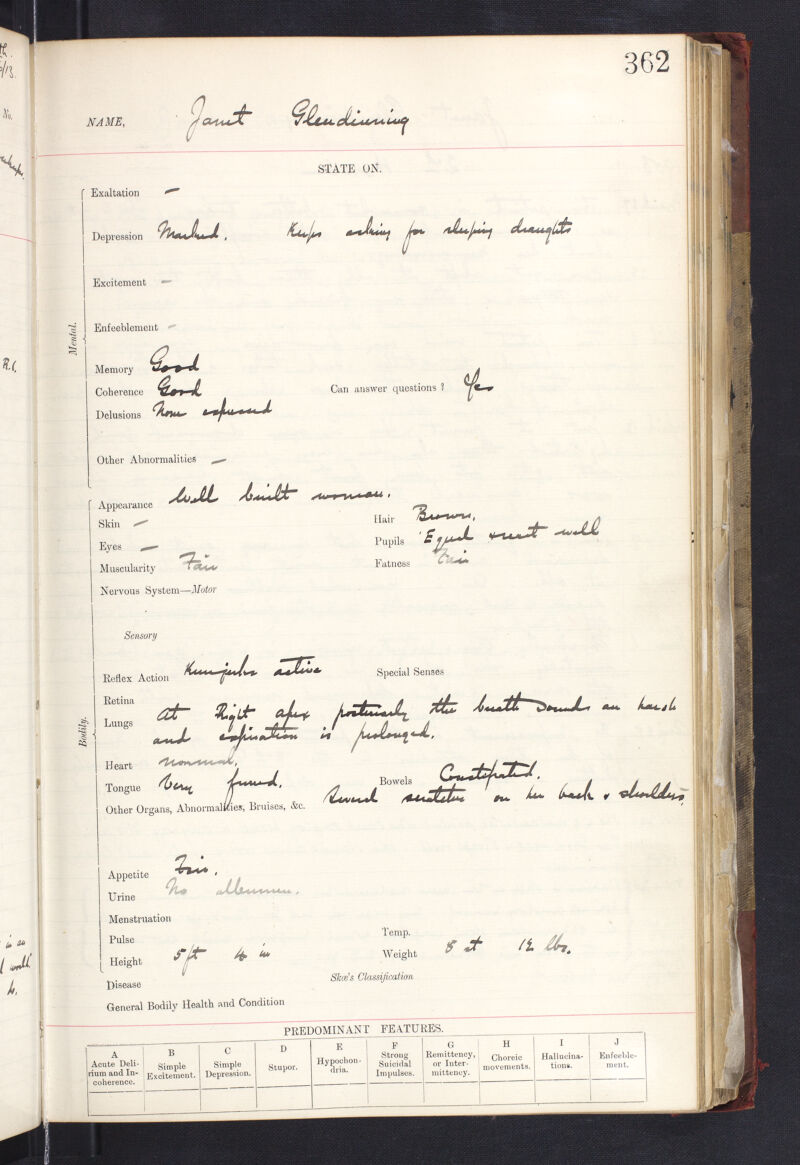 362
NAME, Janet Glendinning
STATE ON.
Mental.
Exaltation —
Depression Marked. Keeps asking for sleeping draughts
Excitement —
Enfeeblement —
Memory Good
Coherence Good Can answer questions? Yes
Delusions None expressed
Other Abnormalities —
Bodily.
Appearance Well built woman.
Skin — Hair Brown.
Eyes — Pupils Equal & react well
Muscularity Fair Fatness Fair
Nervous System—Motor
Sensory
Reflex Action Knee jerks active Special Senses
Retina
Lungs At Right apex posteriorly the breath sounds are harsh
and expiration is prolonged.
Heart normal.
Tongue Very furred. Bowels Constipated.
Other Organs, Abnormalities, Bruises, &c. Several scratches on her back & shoulders.
Appetite Fair.
Urine No albumen.
Menstruation
Pulse Temp.
Height 5 ft 4 in Weight 8 st 12 lbs.
Disease Skæ's Classification
General Bodily Health and Condition
PREDOMINANT FEATURES.
A B C D E F G H I J
Acute Delirium and Incoherence. Simple Excitement. Simple Depression. Stupor. Hypochondria. Strong Suicidal Impulses. Remittency, or Intermittency. Choreic movements. Hallucinations. Enfeeblement.